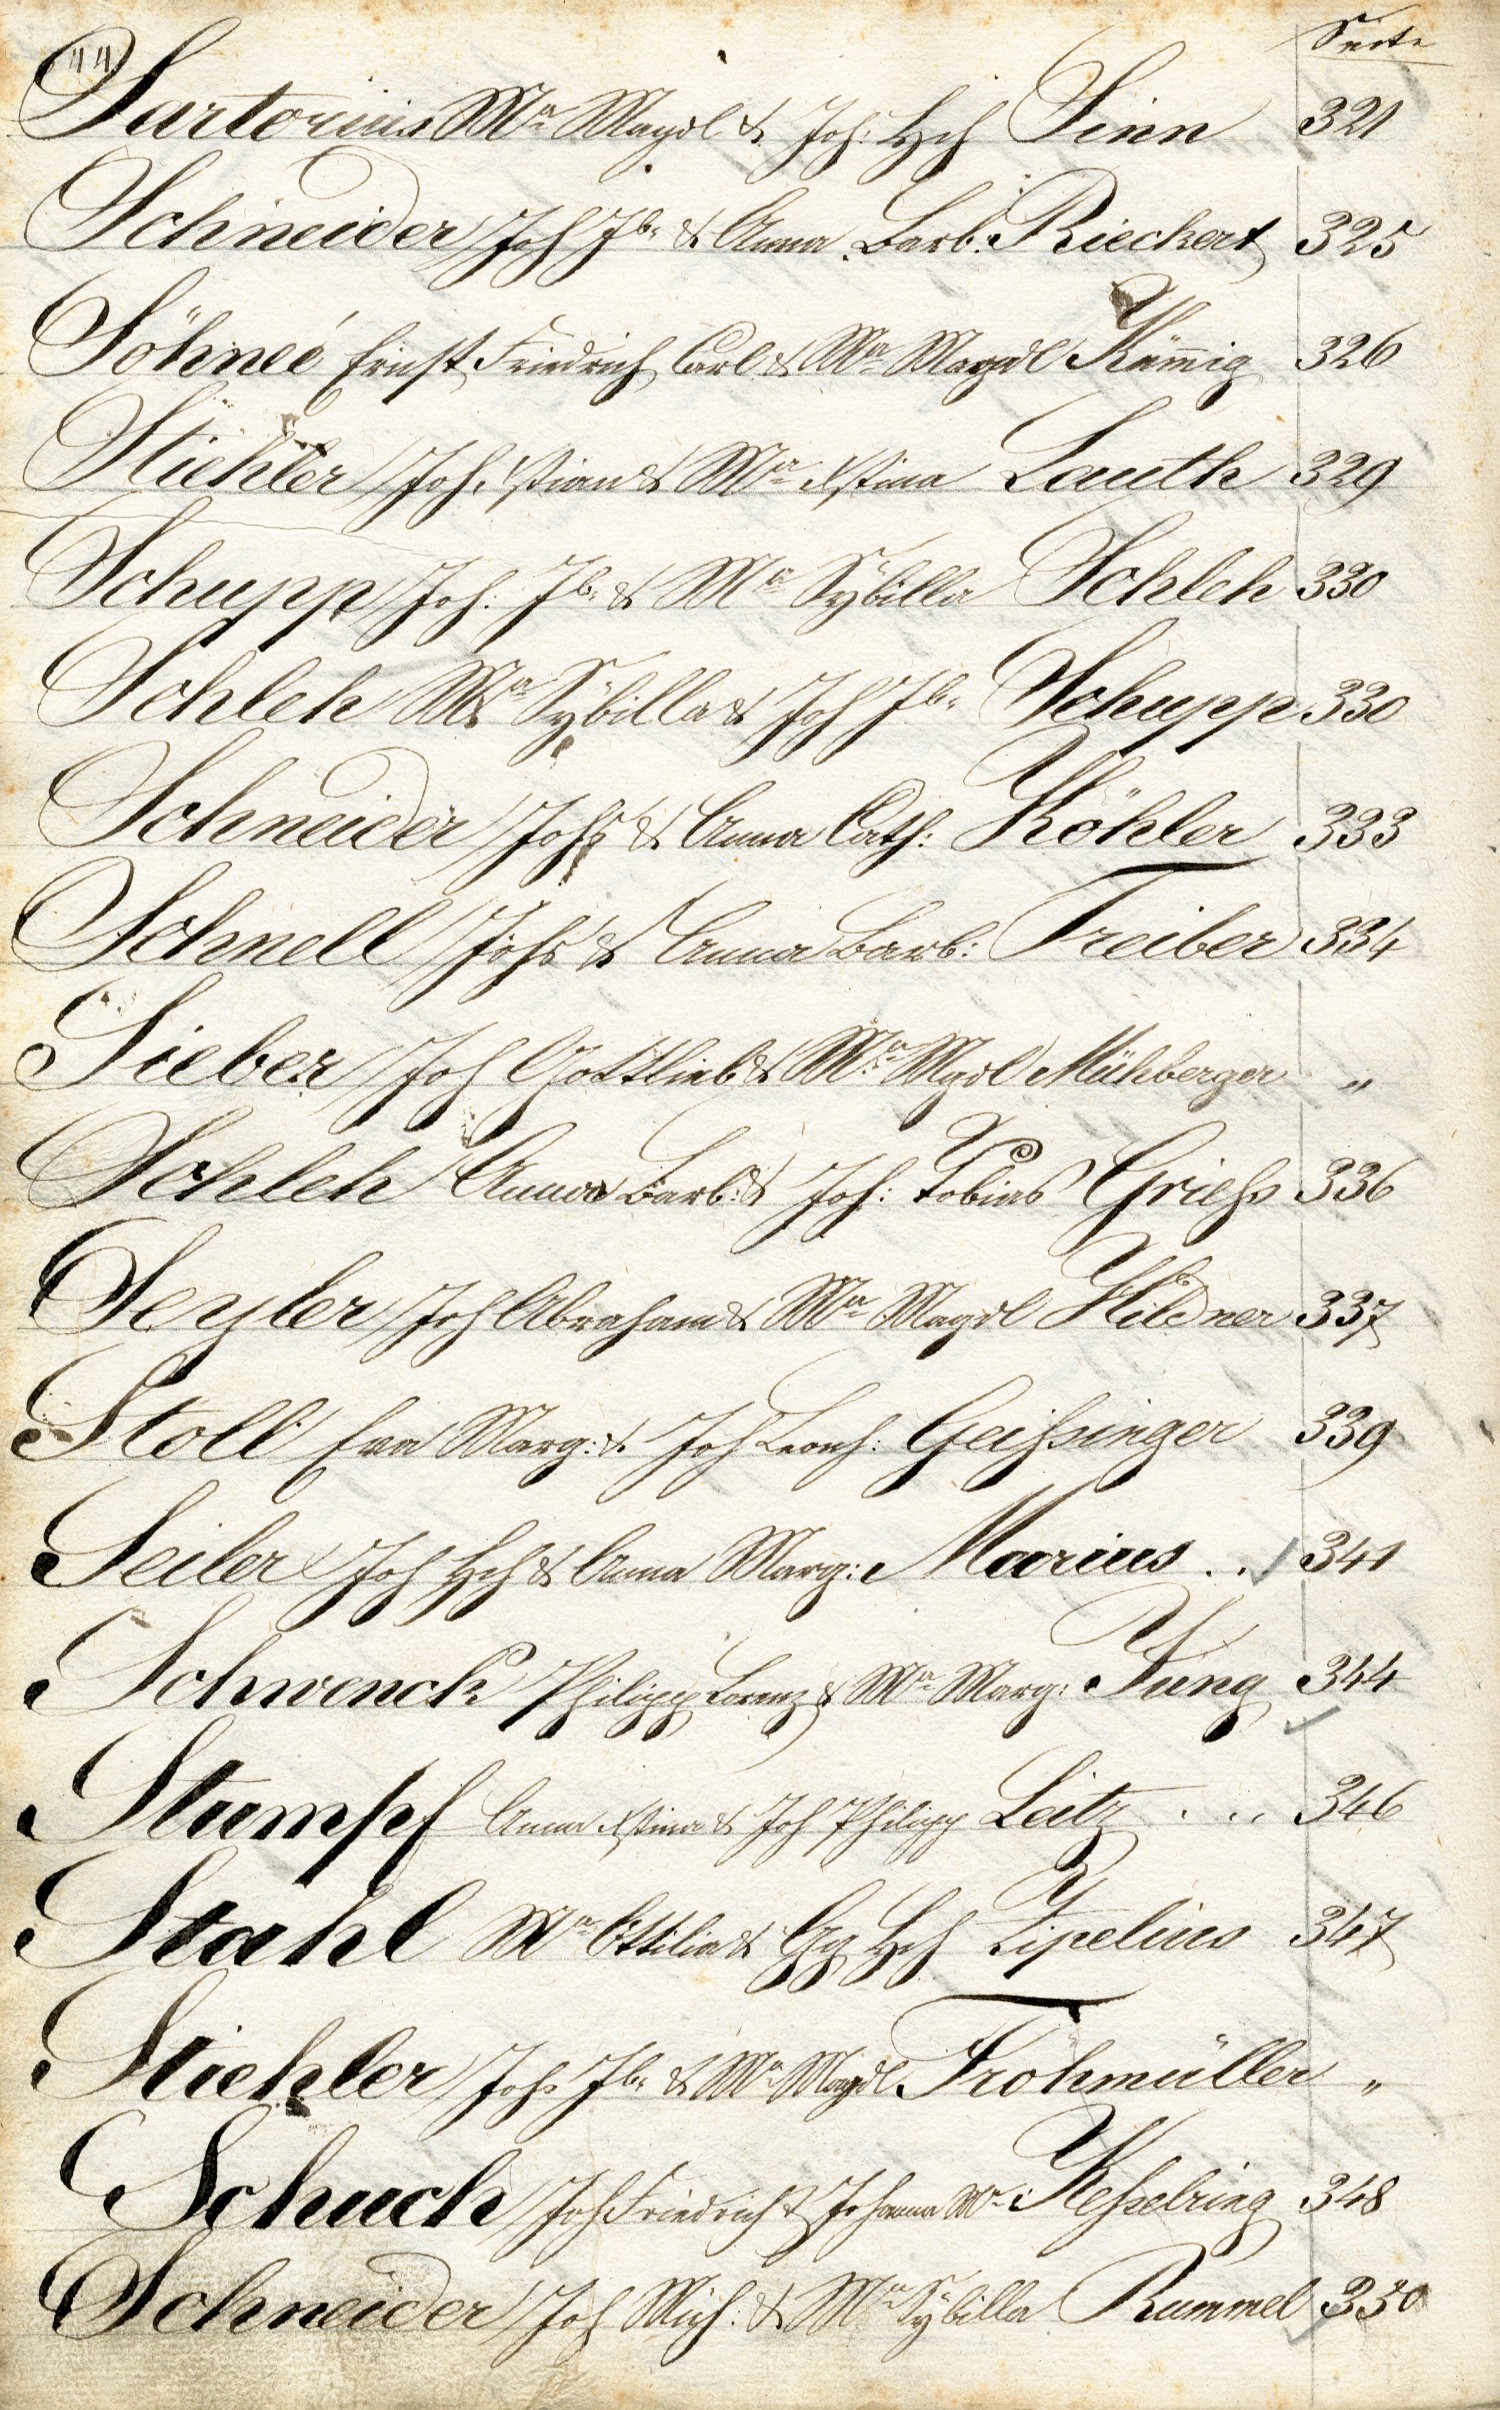 44
Seite
Sartorius Mª Magdl & Joh: Hch Sinn 321
Schneider Joh Jb. & Anna Barb: Rieckert 325
Söhneé Ernst Friedrich Carl & Mª Magdl Kämig 326
Stiehler Joh. Xstian & Mª Xstina Lauth 329
Schupp Joh: Jb. & Mª Sÿbilla Schleh 330
Schleh Mª Sÿbilla & Joh Jb. Schupp 330
Schneider Johs & Anna Cath: Köhler 333
Schnell Johs & Anna Barb: Treiber 334
Sieber Joh Gottlieb & Mª Mgdl Mühberger "
Schleh Anna Barb: & Joh: Tobias Grießs 336
Seyler Joh Abraham & Mª Magdl Hildner 337
Stoll Eva Marg: & Joh Leonh: Geißsinger 339
Seiler Joh Hch & Anna Marg: Marius .. 341
Schwenck Philipp Lorenz & Mª Marg: Jung 344
Stumpf Anna Xstina & Joh Philipp Leitz ... 346
Stahl Mª Ottilia & Gg Hch Zipelius 347
Stiehler Johs Jb. & Mª Magdl Frohmüller "
Schuch Joh Friedrich & Johanna Mª Keßelring 348
Schneider Joh Mich: & Mª Sÿbilla Rummel 350